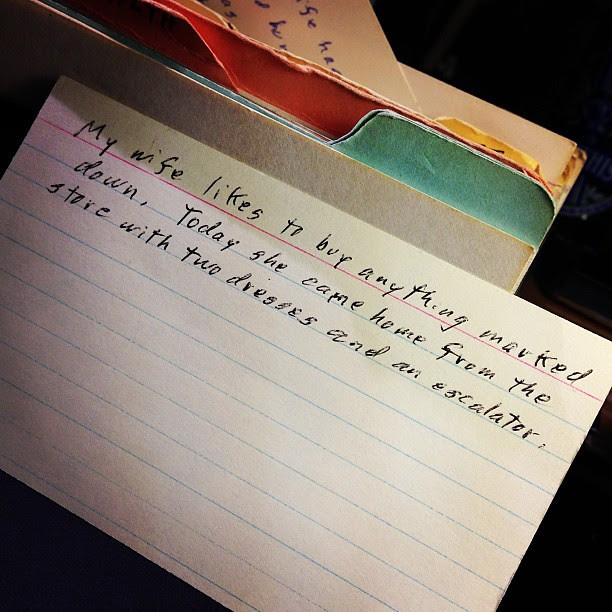 My wife likes to buy anything marked
down. Today she came home from the
store with two dresses and an escalator.